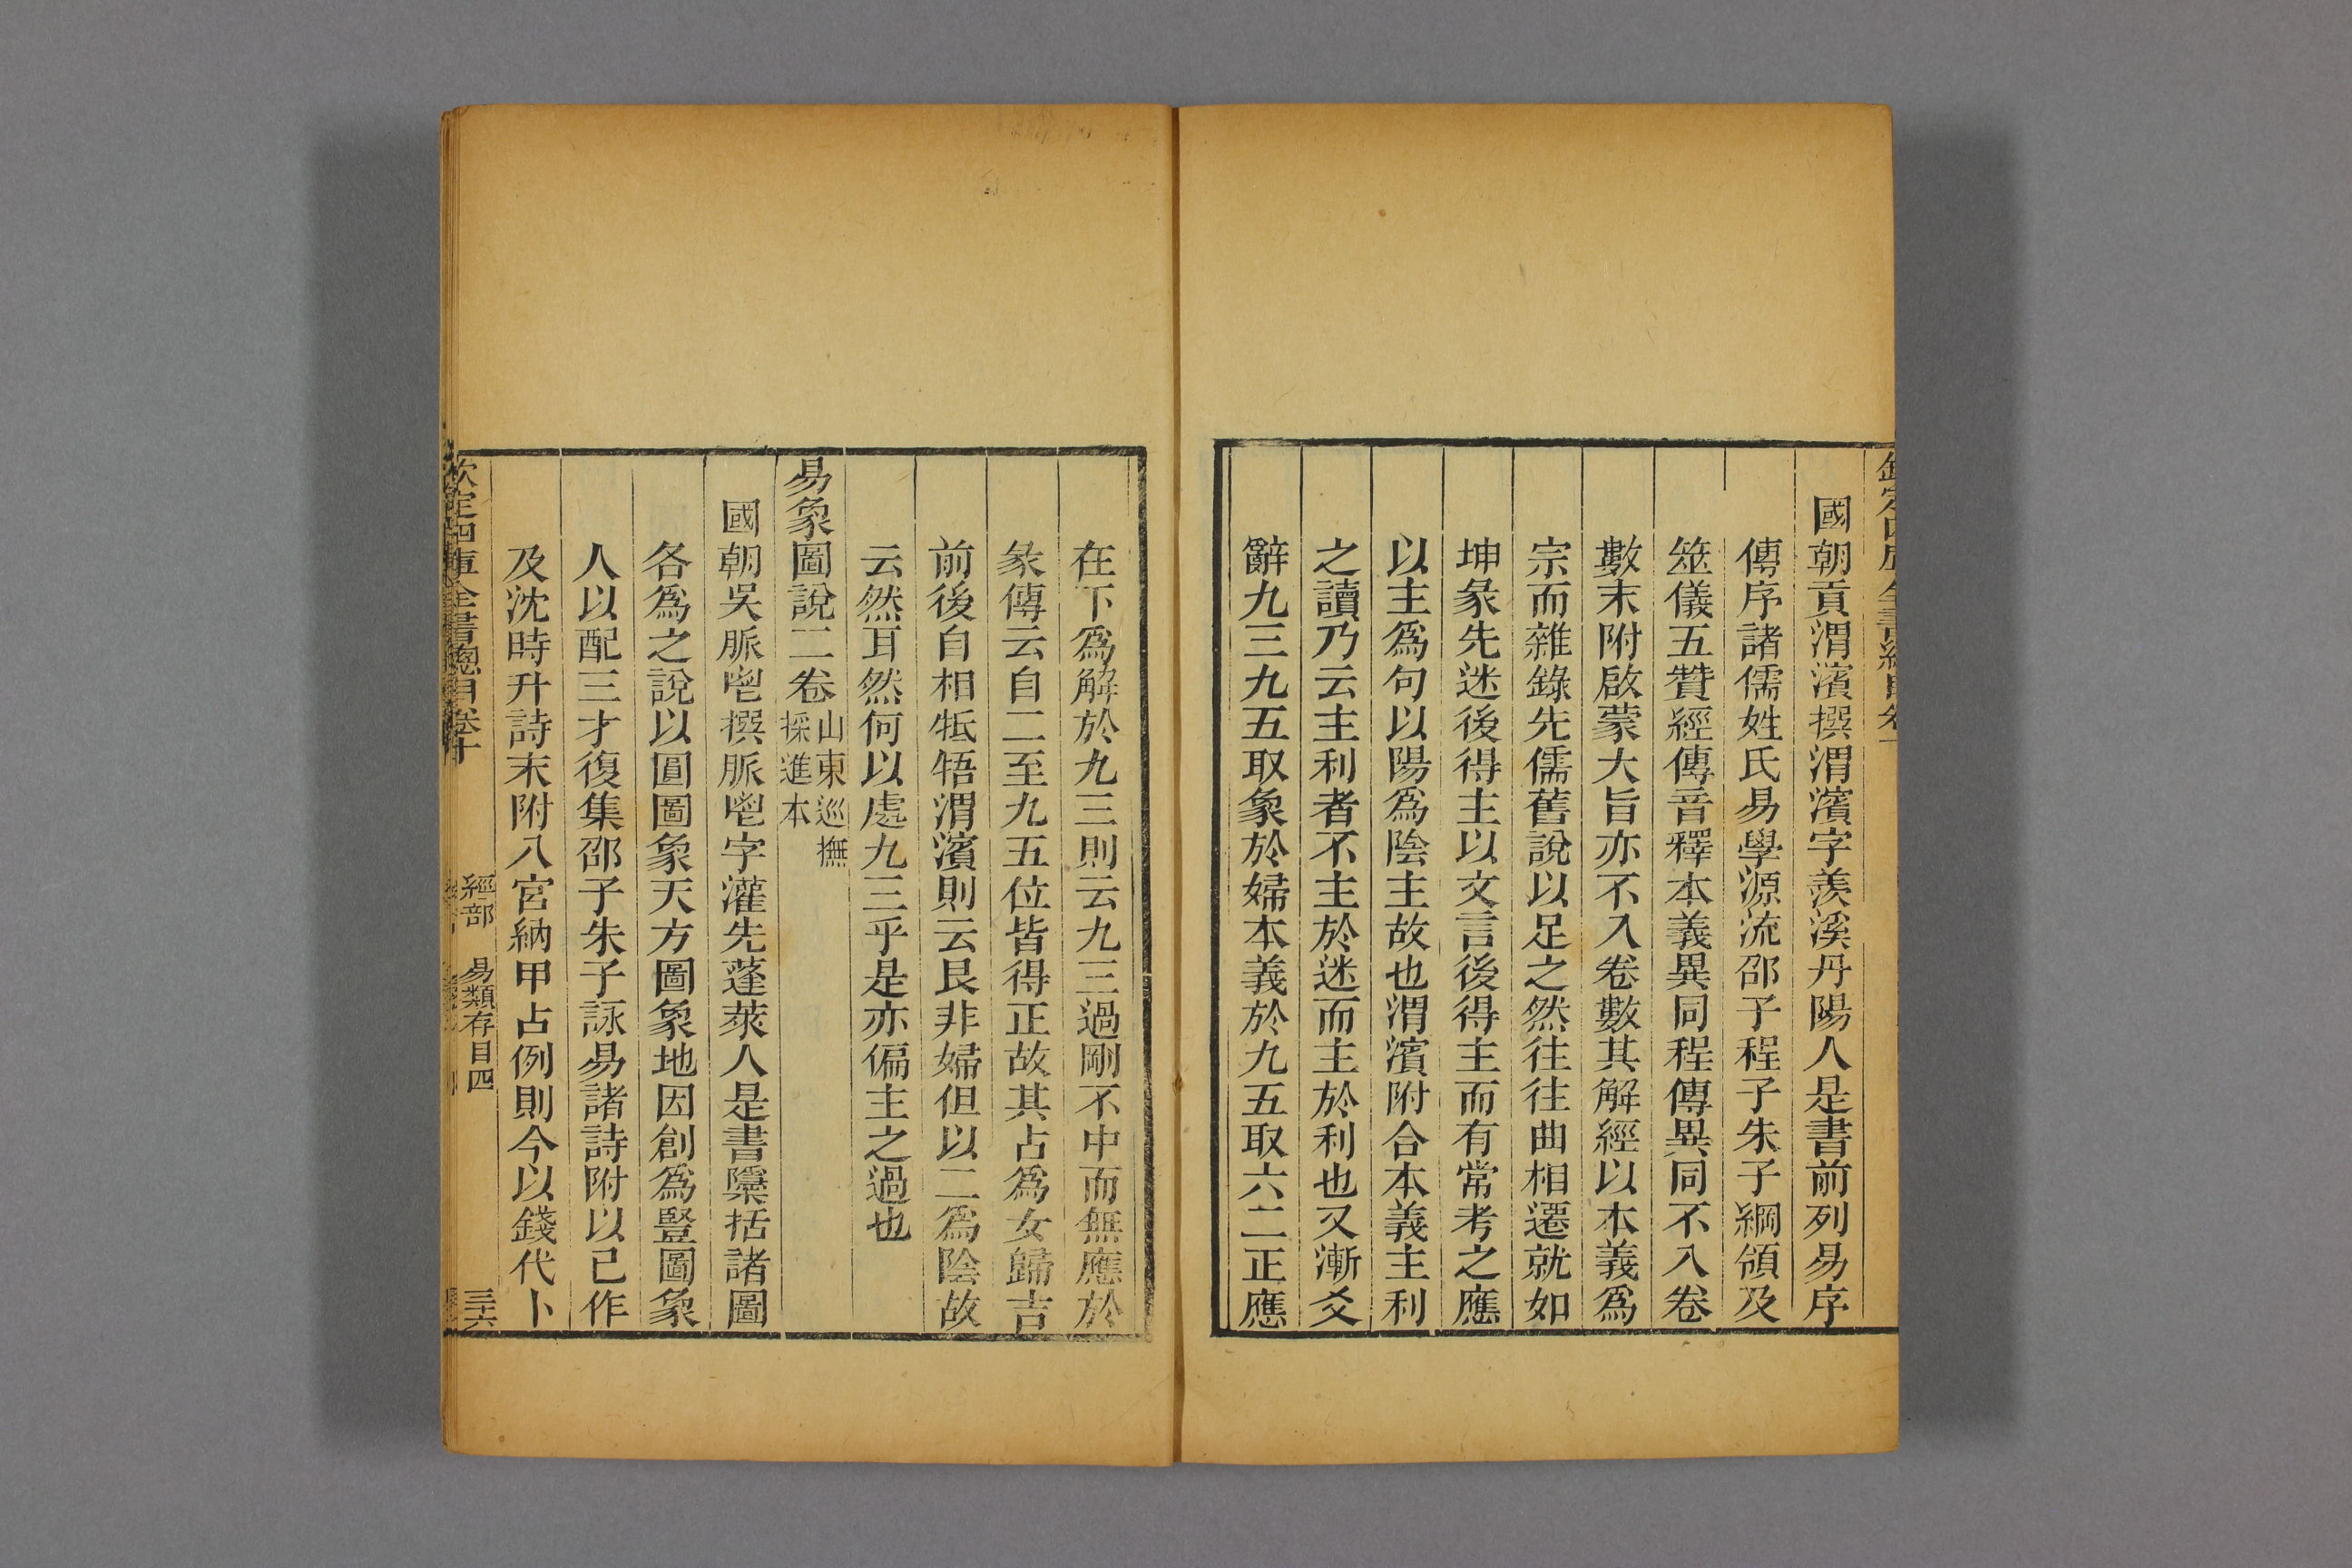 國朝貢渭濱撰渭濱字羨溪丹陽人是書前列易序
傳序諸儒姓氏易學源流邵子程子朱子綱領及
筮儀五贊經傳音釋本義異同程傳異同不入卷
數末附啟蒙大旨亦不入卷數其解經以本義爲
宗而雜錄先儒舊說以足之然往往曲相遷就如
坤彖先迷後得主以文言後得主而有常考之應
以主爲句以陽爲陰主故也渭濱附合本義主利
之讀乃云主利者不主於迷而主於利也又漸爻
辭九三九五取象於婦本義於九五取六二正應
在下爲解於九三則云九三過剛不中而無應於
彖傳云自二至九五位皆得正故其占爲女歸吉
前後自相牴牾渭濱則云艮非婦但以二爲陰故
云然耳然何以處九三乎是亦偏主之過也
易象圖說二卷 山東巡撫
採進本
國朝吳脈鬯撰脈鬯字灌先蓬萊人是書櫽括諸圖
各爲之說以圓圖象天方圖象地因創爲豎圖象
人以配三才復集邵子朱子詠易諸詩附以己作
及沈時升詩末附八宮納甲占例則今以錢代卜
欽定四庫全書總目卷十
經部 易類存目四
三十六